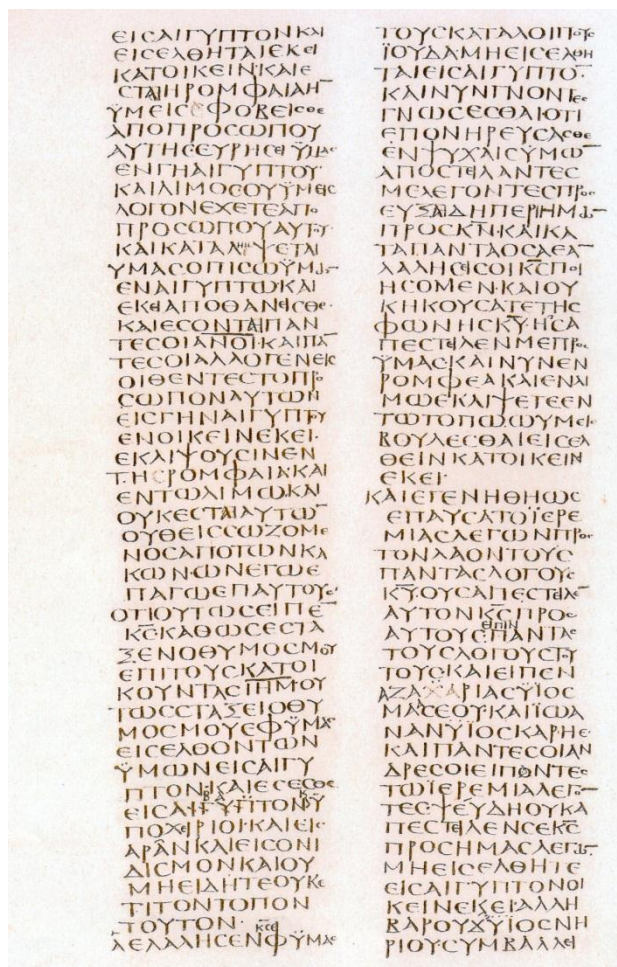 ΕΙϹΑΙΓΥΠΤΟΝΚΑΙ
ΕΙϹΕΛΘΗΤΑΙΕΚΕΙ
ΚΑΤΟΙΚΕΙΝ·ΚΑΙΕ
ϹΤΑΙΗΡΟΜΦΑΙΑΗ̅
ΫΜΕΙϹΦΟΒΕΙϹΘΕ
ΑΠΟΠΡΟϹΩΠΟΥ
ΑΥΤΗϹΕΥΡΗϹΕΙΫΜΑϹ
ΕΝΓΗΑΙΓΥΠΤΟΥ·
ΚΑΙΛΙΜΟϹΟΥΫΜΕΙϹ
ΛΟΓΟΝΕΧΕΤΕΑΠΟ
ΠΡΟϹΩΠΟΥΑΥΤΟΥ
ΚΑΙΚΑΤΑΛΗΜΨΕΤΑΙ
ΥΜΑϹΟΠΙϹΩΫΜΩ̅
ΕΝΑΙΓΥΠΤΩΚΑΙ
ΕΚΕΙΑΠΟΘΑΝΕΙϹΘΕ·
ΚΑΙΕϹΟΝΤΑΙΠΑΝ
ΤΕϹΟΙΑΝΟΙ·ΚΑΙΠΑ̅
ΤΕϹΟΙΑΛΛΟΓΕΝΕΙϹ
ΟΙΘΕΝΤΕϹΤΟΠΡΟ
ϹΩΠΟΝΑΥΤΩΝ
ΕΙϹΓΗΝΑΙΓΥΠΤΟΥ
ΕΝΟΙΚΕΙΝΕΚΕΙ·
ΕΚΛΙΨΟΥϹΙΝΕΝ
ΤΗΡΟΜΦΑΙΑ·ΚΑΙ
ΕΝΤΩΛΙΜΩ·ΚΑΙ
ΟΥΚΕϹΤΑΙΑΥΤΩ̅
ΟΥΘΕΙϹϹΩΖΟΜΕ
ΝΟϹΑΠΟΤΩΝΚΑ
ΚΩΝ·ΩΝΕΓΩΕ
ΠΑΓΩΕΠΑΥΤΟΥϹ
ΟΤΙΟΥΤΩϹΕΙΠΕ̅
Κ̅Ϲ̅ΚΑΘΩϹΕϹΤΑ
ΞΕΝΟΘΥΜΟϹΜΟΥ
ΕΠΙΤΟΥϹΚΑΤΟΙ
ΚΟΥΝΤΑϹΙΗΜ·ΟΥ
ΤΩϹϹΤΑΞΕΙΟΘΥ
ΜΟϹΜΟΥΕΦΫΜΑϹ
ΕΙϹΕΛΘΟΝΤΩΝ
ΫΜΩΝΕΙϹΑΙΓΥ
ΠΤΟΝΚΑΙΕϹΕϹΘΕ
ΕΙϹΑΙΓΥΠΤΟΝΫ
ΠΟΧΕΙΡΙΟΙ·ΚΑΙΕΙϹ
ΑΡΑΝΚΑΙΕΙϹΟΝΙ
ΔΙϹΜΟΝΚΑΙΟΥ
ΜΗΕΙΔΗΤΕΟΥΚΕ
ΤΙΤΟΝΤΟΠΟΝ
ΤΟΥΤΟΝ·
ΑΕΛΑΛΗϹΕΝΦΫΜΑϹ
ΤΟΥϹΚΑΤΑΛΟΙΠΟΥϹ
ΪΟΥΔΑΜΗΕΙϹΕΛΘΗ
ΤΑΙΕΙϹΑΙΓΥΠΤΟ̅·
ΚΑΙΝΥΝΓΝΟΝΤΕϹ
ΓΝΩϹΕϹΘΑΙΟΤΙ
ΕΠΟΝΗΡΕΥϹΑϹΘΕ
ΕΝΨΥΧΑΙϹΥΜΩ̅
ΑΠΟϹΤΕΙΛΑΝΤΕϹ
ΜΕΛΕΓΟΝΤΕϹΠΡΟϹ
ΕΥΞΑΙΔΗΠΕΡΙΗΜΩ̅
ΠΡΟϹΚ̅Ν̅·ΚΑΙΚΑ
ΤΑΠΑΝΤΑΟϹΑΕΑ̅
ΛΑΛΗϹΕΙϹΟΙΚ̅Ϲ̅ΠΟΙ
ΗϹΟΜΕΝ·ΚΑΙΟΥ
ΚΗΚΟΥϹΑΤΕΤΗϹ
ΦΩΝΗϹΚ̅Υ̅·ΗϹΑ
ΠΕϹΤΕΙΛΕΝΜΕΠΡΟϹ
ΫΜΑϹ·ΚΑΙΝΥΝΕΝ
ΡΟΜΦΕΑΚΑΙΕΝΛΙ
ΜΩΕΚΛΙΨΕΤΕΕΝ
ΤΩΤΟΠΩΩΥΜΕΙϹ
ΒΟΥΛΕϹΘΑΙΕΙϹΕΛ
ΘΕΙΝΚΑΤΟΙΚΕΙΝ
ΕΚΕΙ·
ΚΑΙΕΓΕΝΗΘΗΩϹ
ΕΠΑΥϹΑΤΟΪΕΡΕ
ΜΙΑϹΛΕΓΩΝΠΡΟϹ
ΤΟΝΛΑΟΝΤΟΥϹ
ΠΑΝΤΑϹΛΟΓΟΥϹ
Κ̅Υ̅·ΟΥϹΑΠΕϹΤΕΙΛΕ̅
ΑΥΤΟΝΚ̅Ϲ̅ΠΡΟϹ
ΑΥΤΟΥϹΠΑΝΤΑϹ
ΤΟΥϹΛΟΓΟΥϹΤΟΥ
ΤΟΥϹΚΑΙΕΙΠΕΝ
ΑΖΑΧΑΡΙΑϹΥΪΟϹ
ΜΑϹΕΟΥ·ΚΑΙΪΩΑ
ΝΑΝΥΪΟϹΚΑΡΗΕ·
ΚΑΙΠΑΝΤΕϹΟΙΑΝ
ΔΡΕϹΟΙΕΙΠΟΝΤΕϹ
ΤΩΪΕΡΕΜΙΑΛΕΓΟ̅
ΤΕϹ·ΨΕΥΔΗΟΥΚΑ
ΠΕϹΤΕΙΛΕΝϹΕΚ̅Ϲ̅
ΠΡΟϹΗΜΑϹΛΕΓΩ̅
ΜΗΕΙϹΕΛΘΗΤΕ
ΕΙϹΑΙΓΥΠΤΟΝΟΙ
ΚΕΙΝΕΚΕΙ·ΑΛΛΗ
ΒΑΡΟΥΧΫΙΟϹΝΗ
ΡΙΟΥϹΥΜΒΑΛΛΕΙ